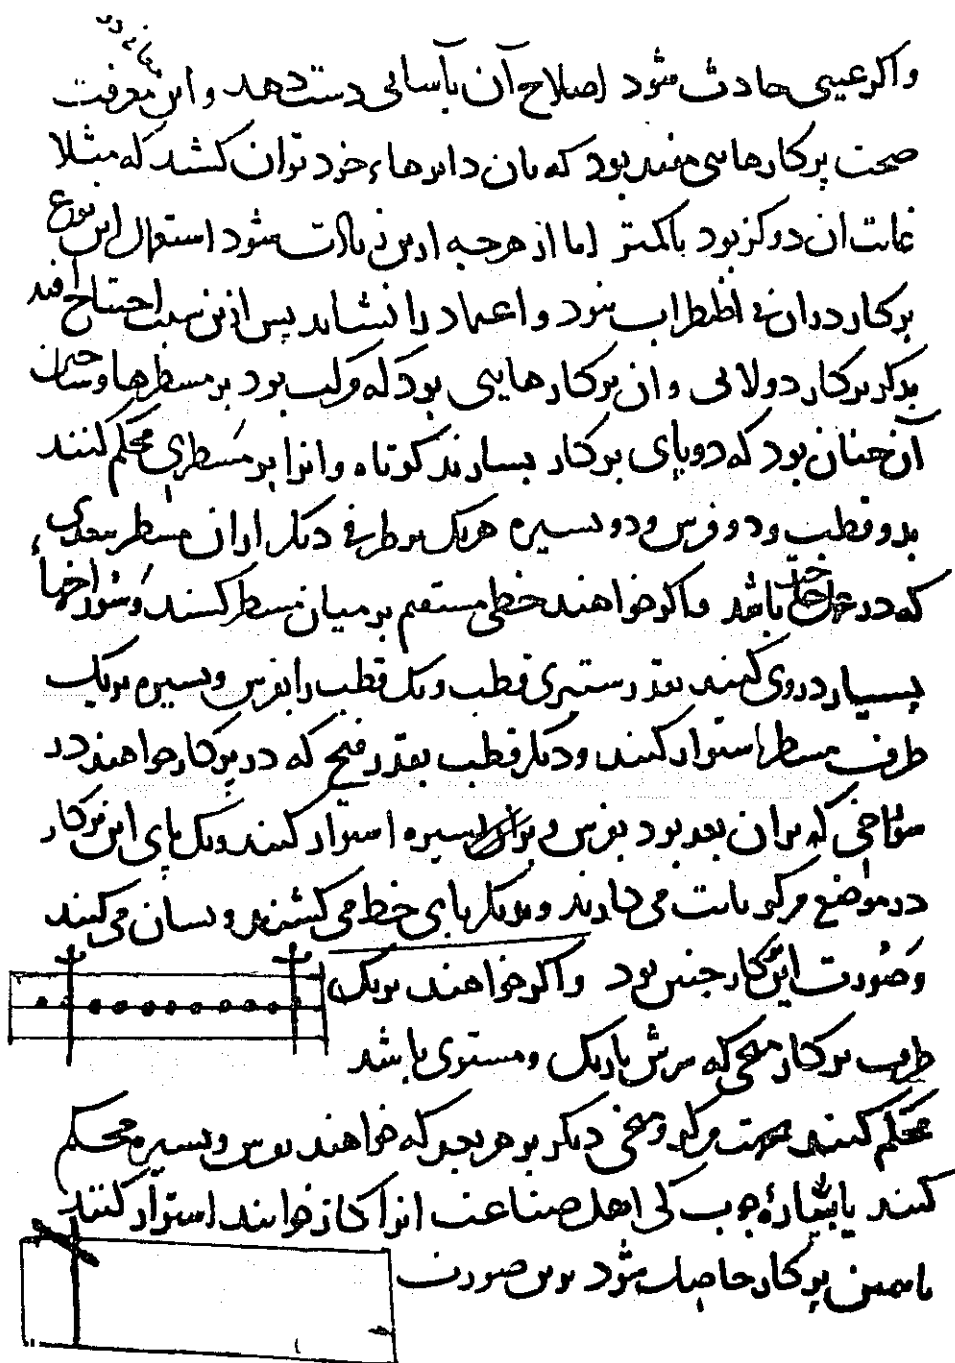 واکر عیبی حادث شود اصلاح آن بآسانی دست دهد و این معرفت
صحت پرکارهایی مفید بود که بان دایرهاء خرد توان کشید که مثلا
غایت ان دو کز بود یا کمتر اما از هرچه ازین زیادت شود استعمال این نوع
پرکار دران فی اظطراب نبود و اعتماد را نشاید پس ازین سبب احتیاج افتد
بدکر برکار دولابی و ان برکارهایی بود که مرکب بود بر مسطرها و ساختن
آن جنان بود که دو پای برکار بسازند کوتاه و انرا بر مسطری محکم کنند
بدو قطب و دو فرس و دو بسیره هریک بطرفی دیکر ازان مسطر ببعدی
که در باشد واکر خواهند خطی مستقیم بر میان مسطر کشند و سوراخهاء
بسیار دروی کنند بقدر ستبری قطب ویک قطب را بفرس و بسیره بریک
طرف مسطر استوار کنند و دیکر قطب بقدر فتح که در برکار خواهند در
سوراخی که بران بعد بود بفرس و بسیره استوار کنند ویک پای این برکار
در موضع مرکز ثابت می دارند و بدیکر پای خط می کشند و نسان می کنند
وصورت این برکار جنین بود واکر خواهند بریک
طرف برکار میخی که سرش باریک و مستوی باشد
محکم کنند مرکز و میخی دیکر بر هر بعد که خواهند بفرس و بسیره محکم
کنند یا بپارهٔ جوب کی اهل صناعت انرا کاز خوانند استوار کنند
تا همین پرکار حاصل شود برین صورت